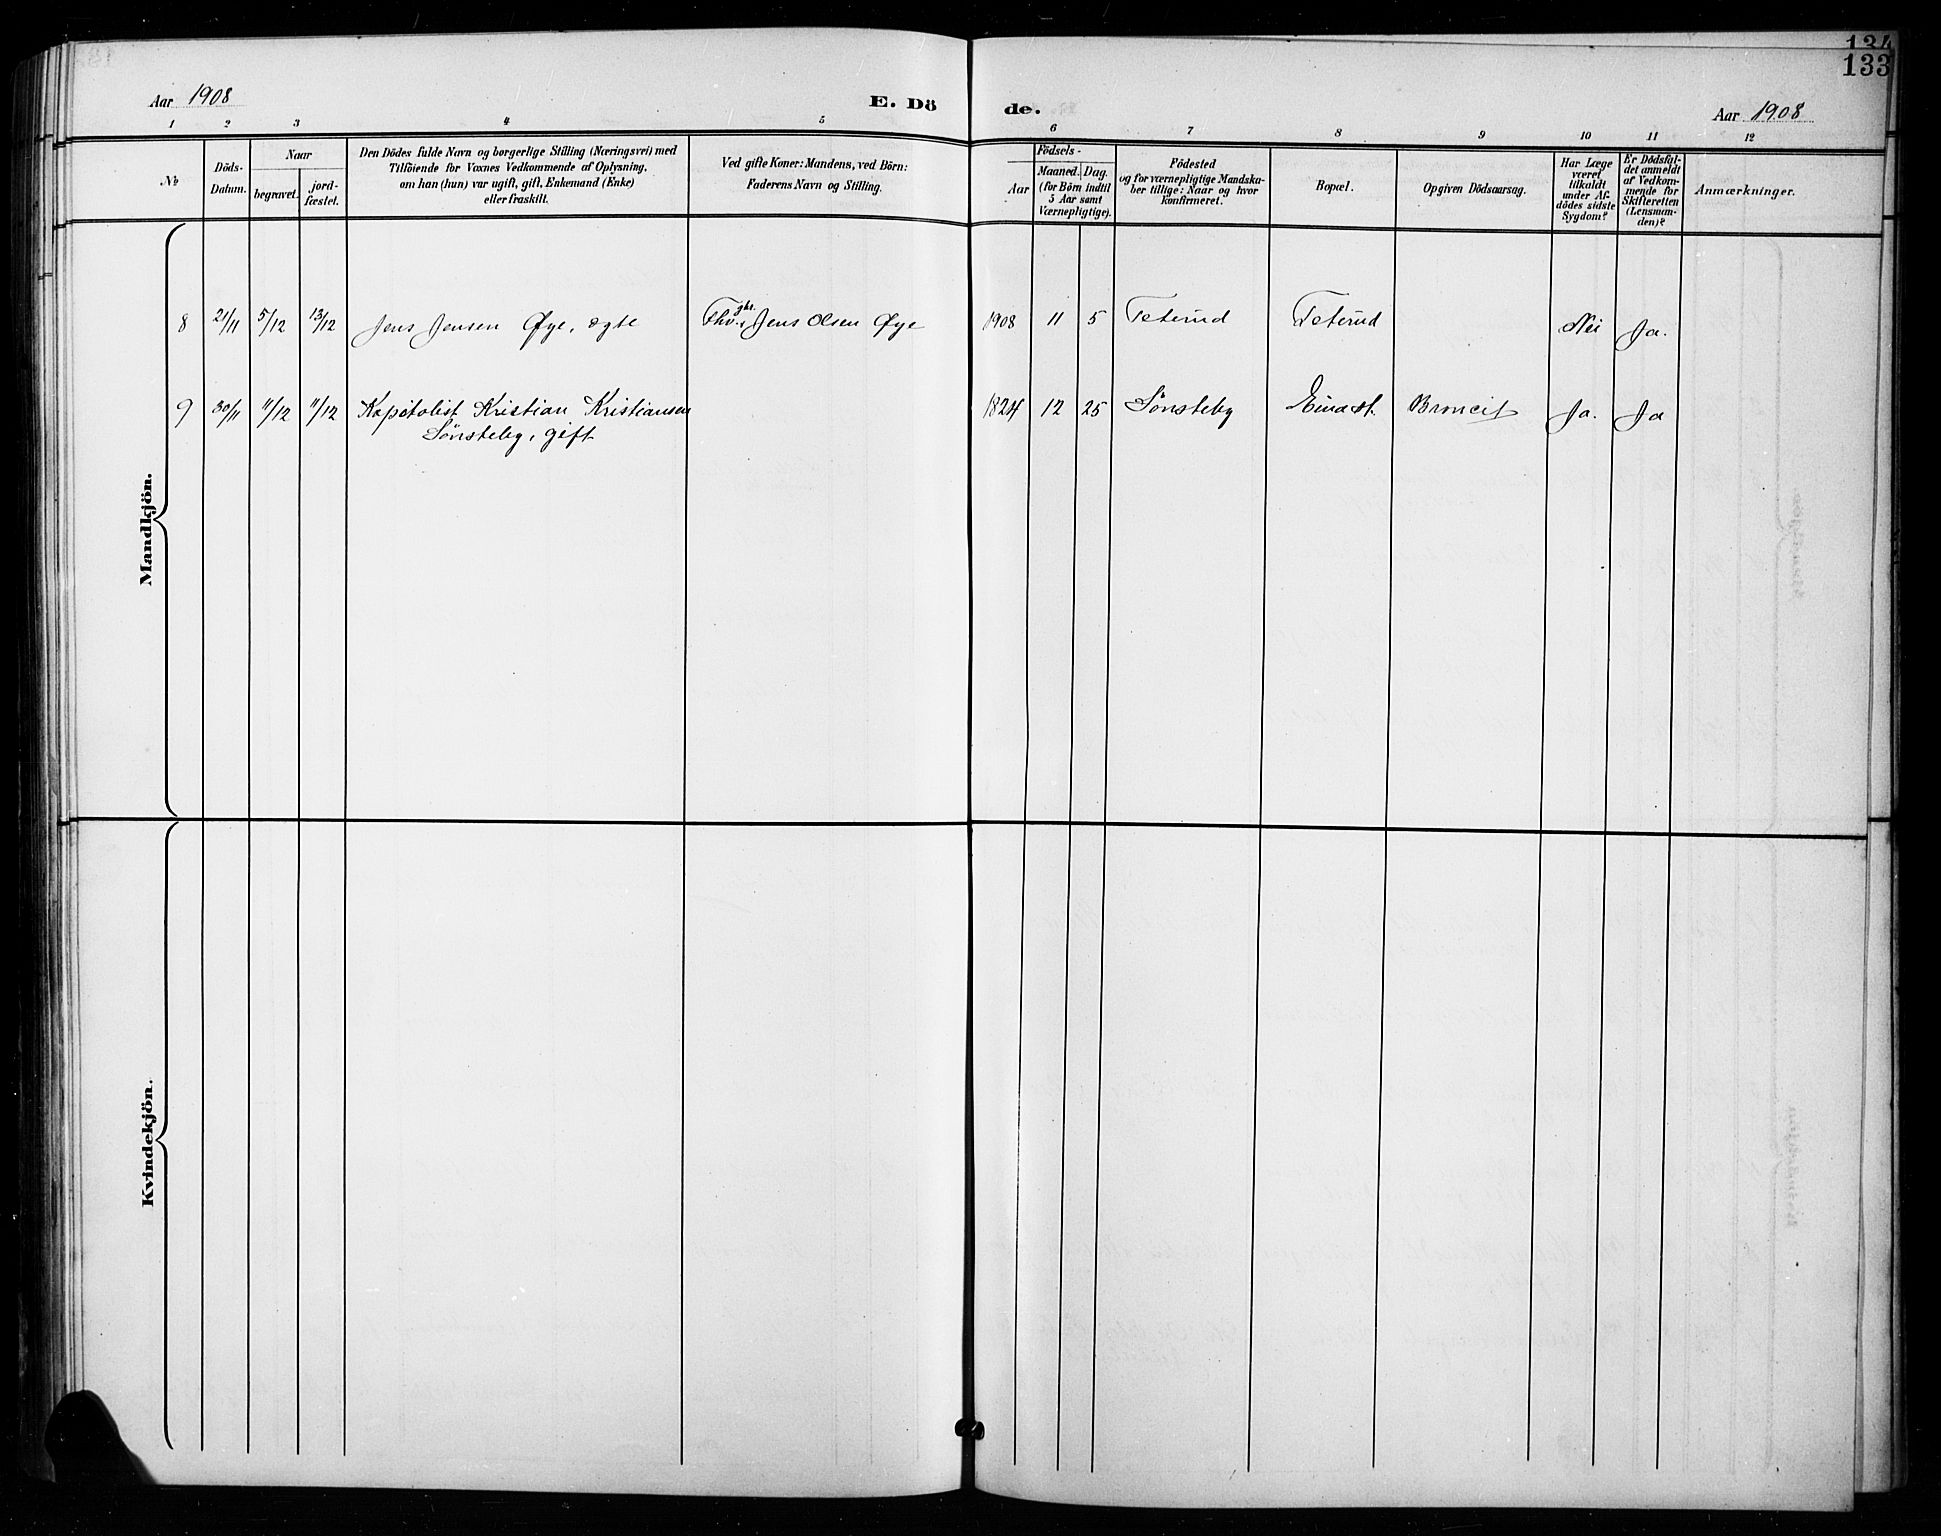 134
133
Aar 1908
E. Dö
de.
Aar 1908
1 2 3 4 5 6 7 8 9 10 11 12
№
Döds-
Datum.
Naar
begravet.
jord-
fæstet.
Den Dödes fulde Navn og borgerlige Stilling (Næringsvei) med
Tilföiende for Voxnes Vedkommende af Oplysning,
om han (hun) var ugift, gift, Enkemand (Enke)
eller fraskilt.
Ved gifte Koner: Mandens, ved Börn:
Faderens Navn og Stilling.
Födsels-
Aar
Maaned. Dag.
(for Börn indtil
5 Aar samt
Værnepligtige).
Födested
og for værnepligtige Mandska-
ber tillige: Naar og hvor
konfirmeret.
Bopæl.
Opgiven Dödsaarsag.
Har Læge
været
tilkaldt
under Af-
dödes sidste
Sygdom?
Er Dödsfal-
det anmeldt
af Vedkom-
mende for
Skifteretten
(Lensman-
den)?
Anmærkninger.
Mandkjön.
8 21/11 5/12 13/12 Jens Jensen Øye, ægte Jens Olsen Øye 1908 11 5 Teterud Teterud Nei Ja.
9 30/11 11/12 11/12 Kapitalist Kristian Kristiansen 1824 12 25 Sønsteby Eina st. Ja. Ja
Sønsteby, gift
Kvindekjön.